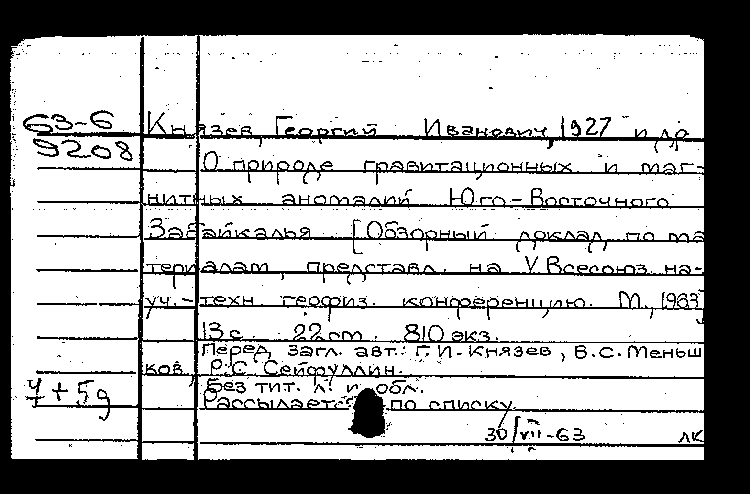 63-6 Князев, Георгий Иванович, 1927 и др
9208
О природе гравитационных и маг-
нитных аномалий Юго-Восточного
Забайкалья [Обзорный доклад по ма
териалам, представл. на V Всесоюз. на-
уч.-техн. геофиз. конференцию. М., 1963
13 с. 22 cm. 810 экз.
Перед загл. авт.: Г.И. Князев, В.С. Меньш
ков, Р.С. Сейфуллин.
Без тит. л. и обл.
7+5g Рассылается по списку
30/VII-63 лк